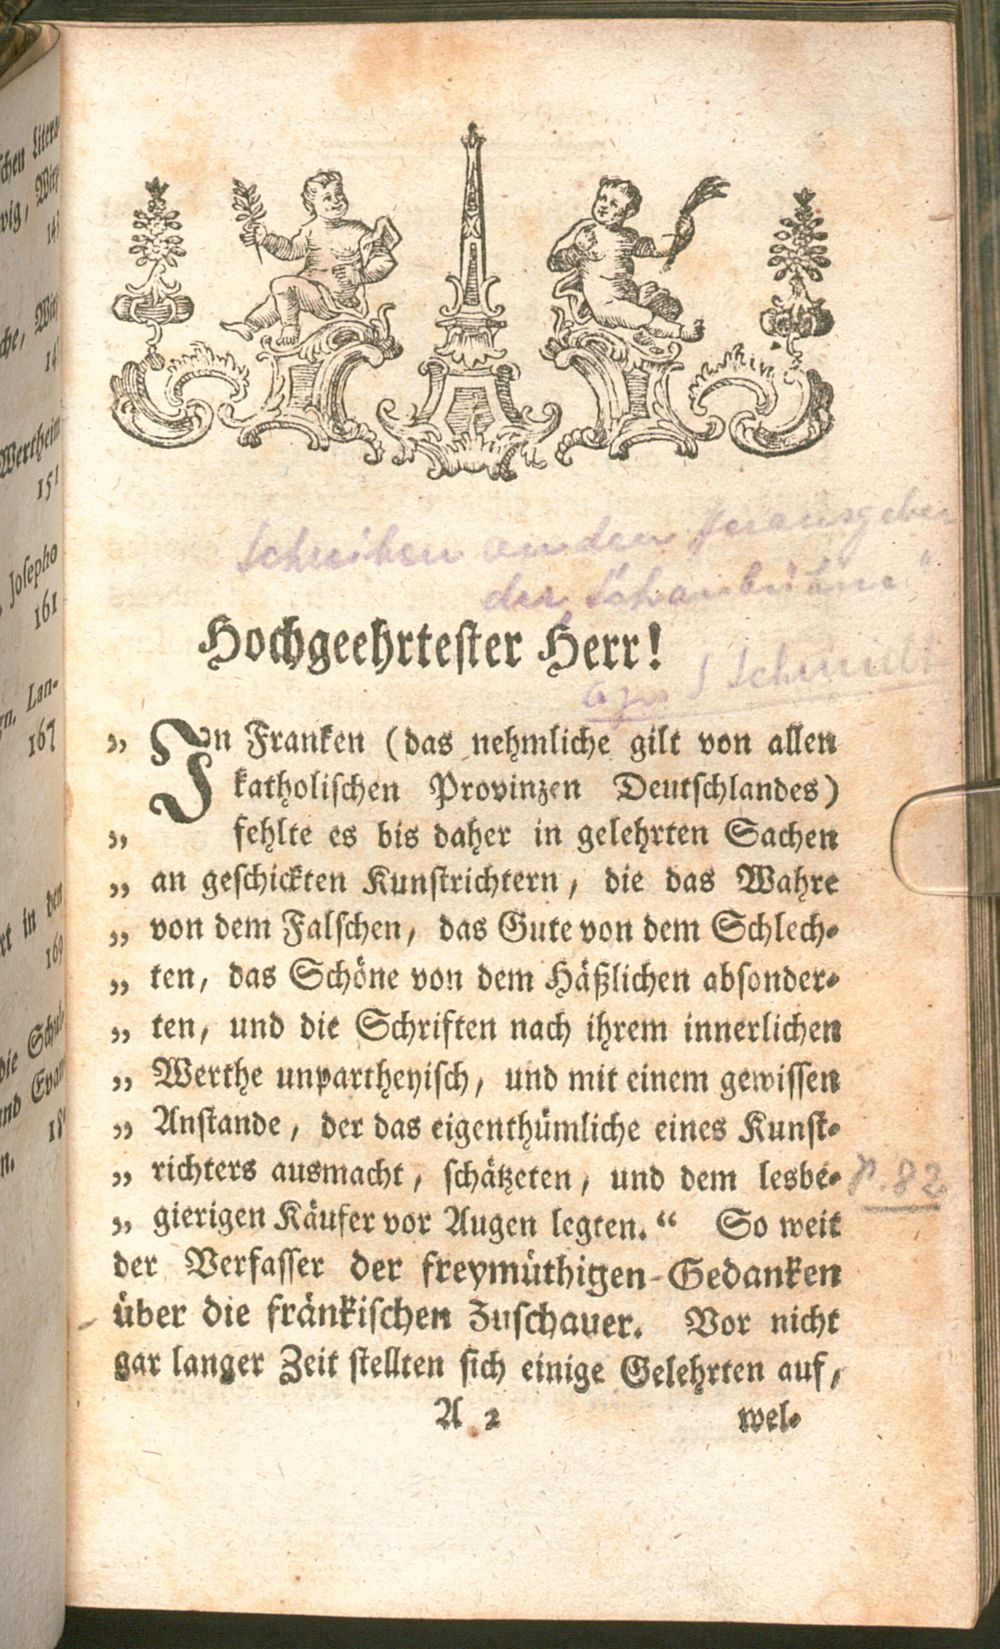 Schreiben an den Herausgeber
der Schaubühne"
Hochgeehrtester Herr!
Schmidt
„ In Franken (das nehmliche gilt von allen
katholischen Provinzen Deutschlandes)
„ fehlte es bis daher in gelehrten Sachen
„ an geschickten Kunstrichtern, die das Wahre
„ von dem Falschen, das Gute von dem Schlech-
„ ten, das Schöne von dem Häßlichen absonder-
„ ten, und die Schriften nach ihrem innerlichen
„ Werthe unpartheyisch, und mit einem gewissen
„ Anstande, der das eigenthümliche eines Kunst-
„ richters ausmacht, schätzeten, und dem lesbe-
p. 82
„ gierigen Käufer vor Augen legten.“ So weit
der Verfasser der freymüthigen Gedanken
über die fränkischen Zuschauer. Vor nicht
gar langer Zeit stellten sich einige Gelehrten auf,
A 2 wel-
Wertheim
151
Josepho
161
Lan-
167
in den
169
die Schul
und Evan